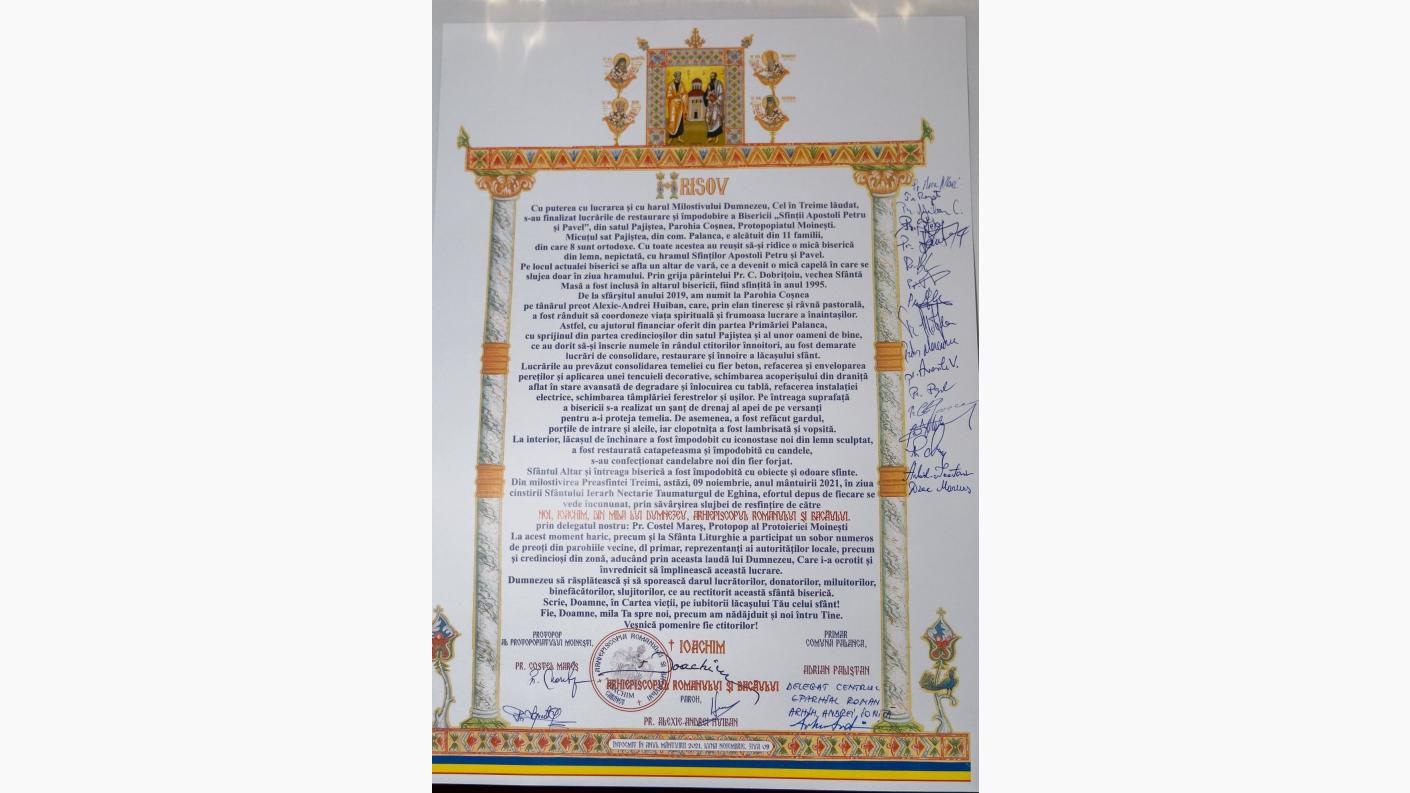 HRISOV
Cu puterea cu lucrarea și cu harul Milostivului Dumnezeu, Cel în Treime lăudat,
s-au finalizat lucrările de restaurare și împodobire a Bisericii „Sfinții Apostoli Petru
și Pavel”, din satul Pajiștea, Parohia Coșnea, Protopopiatul Moinești.
Micuțul sat Pajiștea, din com. Palanca, e alcătuit din 11 familii,
din care 8 sunt ortodoxe. Cu toate acestea au reușit să-și ridice o mică biserică
din lemn, nepictată, cu hramul Sfinților Apostoli Petru și Pavel.
Pe locul actualei biserici se afla un altar de vară, ce a devenit o mică capelă în care se
slujea doar în ziua hramului. Prin grija părintelui Pr. C. Dobrițoiu, vechea Sfântă
Masă a fost inclusă în altarul bisericii, fiind sfințită în anul 1995.
De la sfârșitul anului 2019, am numit la Parohia Coșnea
pe tânărul preot Alexie-Andrei Huiban, care, prin elan tineresc și râvnă pastorală,
a fost rânduit să coordoneze viața spirituală și frumoasa lucrare a înaintașilor.
Astfel, cu ajutorul financiar oferit din partea Primăriei Palanca,
cu sprijinul din partea credincioșilor din satul Pajiștea și al unor oameni de bine,
ce au dorit să-și înscrie numele în rândul ctitorilor înnoitori, au fost demarate
lucrări de consolidare, restaurare și înnoire a lăcașului sfânt.
Lucrările au prevăzut consolidarea temeliei cu fier beton, refacerea și enveloparea
pereților și aplicarea unei tencuieli decorative, schimbarea acoperișului din draniță
aflat în stare avansată de degradare și înlocuirea cu tablă, refacerea instalației
electrice, schimbarea tâmplăriei ferestrelor și ușilor. Pe întreaga suprafață
a bisericii s-a realizat un șanț de drenaj al apei de pe versanți
pentru a-i proteja temelia. De asemenea, a fost refăcut gardul,
porțile de intrare și aleile, iar clopotnița a fost lambrisată și vopsită.
La interior, lăcașul de închinare a fost împodobit cu iconostase noi din lemn sculptat,
a fost restaurată catapeteasma și împodobită cu candele,
s-au confecționat candelabre noi din fier forjat.
Sfântul Altar și întreaga biserică a fost împodobită cu obiecte și odoare sfinte.
Din milostivirea Preasfintei Treimi, astăzi, 09 noiembrie, anul mântuirii 2021, în ziua
cinstirii Sfântului Ierarh Nectarie Taumaturgul de Eghina, efortul depus de fiecare se
vede încununat, prin săvârșirea slujbei de resfințire de către
NOI, IOACHIM, DIN MILA LUI DUMNEZEU, ARHIEPISCOPUL ROMANULUI ȘI BACĂULUI.
prin delegatul nostru: Pr. Costel Mareș, Protopop al Protoieriei Moinești
La acest moment haric, precum și la Sfânta Liturghie a participat un sobor numeros
de preoți din parohiile vecine, dl primar, reprezentanți ai autorităților locale, precum
și credincioși din zonă, aducând prin aceasta laudă lui Dumnezeu, Care i-a ocrotit și
învrednicit să împlinească această lucrare.
Dumnezeu să răsplătească și să sporească darul lucrătorilor, donatorilor, miluitorilor,
binefăcătorilor, slujitorilor, ce au rectitorit această sfântă biserică.
Scrie, Doamne, în Cartea vieții, pe iubitorii lăcașului Tău celui sfânt!
Fie, Doamne, mila Ta spre noi, precum am nădăjduit și noi întru Tine.
Veșnică pomenire fie ctitorilor!
PROTOPOP
AL PROTOPOPIATULUI MOINEȘTI,
PR. COSTEL MAREȘ
† IOACHIM
Ioachim
ARHIEPISCOPUL ROMANULUI ȘI BACĂULUI
PAROH,
PR. ALEXIE-ANDREI HUIBAN
PRIMAR
COMUNA PALANCA,
ADRIAN PALIȘTAN
DELEGAT CENTRUL
EPARHIAL ROMAN
ARHIM. ANDREI IONIȚĂ
ÎNTOCMIT ÎN ANUL MÂNTUIRII 2021, LUNA NOIEMBRIE, ZIUA 09